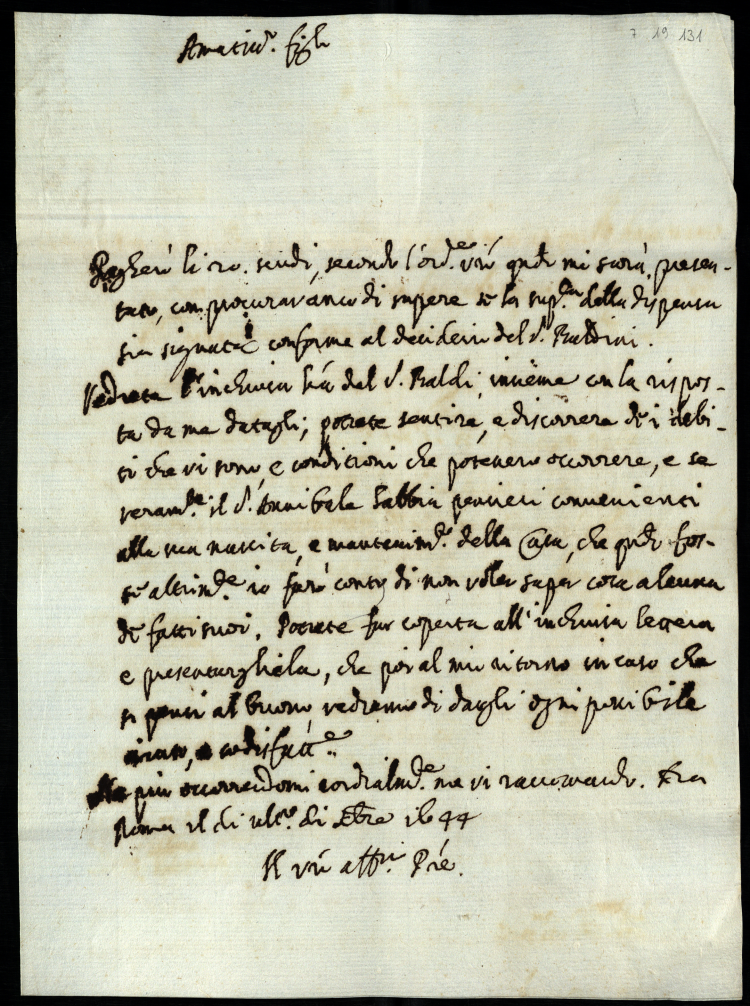 7 19 131
Amatiss.e figli
Pagherò li 20. scudi, secondo l'ord.e vrõ qndo mi sarà presen-
tato, con procurar anco di sapere se la sup.ca della dispensa
sia signata conforme al desiderio del S.r Baldini.
Vedrete l'inchiusa l.ra del S. Baldi, insieme con la rispos-
ta da me datagli; potrete sentire, e discorrere de i debi-
ti che vi sono, e conditioni che potessero occorrere, e se
veram.te il S.r Annibale habbia pensieri convenienti
alla sua nascita, e mantenim.to della Casa, che qndo fos-
se altrim.te io farò conto di non voler saper cosa alcuna
de fatti suoi. Potrete far coperta all'inchiusa lettera
e presentargliela, che poi al mio ritorno in caso che
si pensi al buono, vedremo di dargli ogni possibile
aiuto, e sodisfatt.e
più occorrendomi cordialm.te me vi raccomando. Era
Roma il dì ult.o di Xbre 1644
Il vrõ aff.mo Pře.